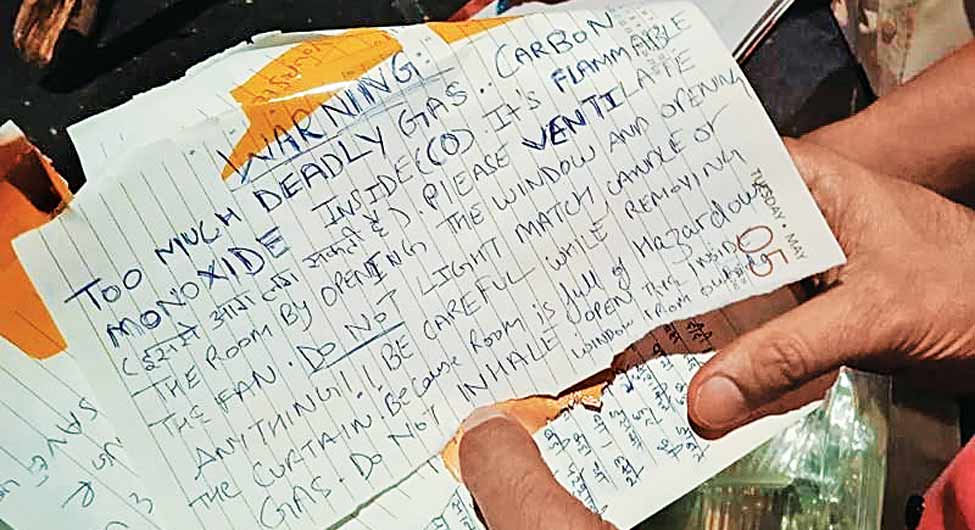 WARNING:
TOO MUCH DEADLY GAS.. CARBON
MONOXIDE INSIDE (CO). It's FLAMMABLE
(इसमें आग लग सकती है). PLEASE VENTILATE
THE ROOM BY OPENING THE WINDOW AND OPENING
THE FAN. DO NOT LIGHT MATCH, CANDLE or
ANYTHING!! BE CAREFUL WHILE REMOVING
THE CURTAIN. Because Room is full of Hazardous
GAS. Do NOT INHALE
TUESDAY • MAY
05